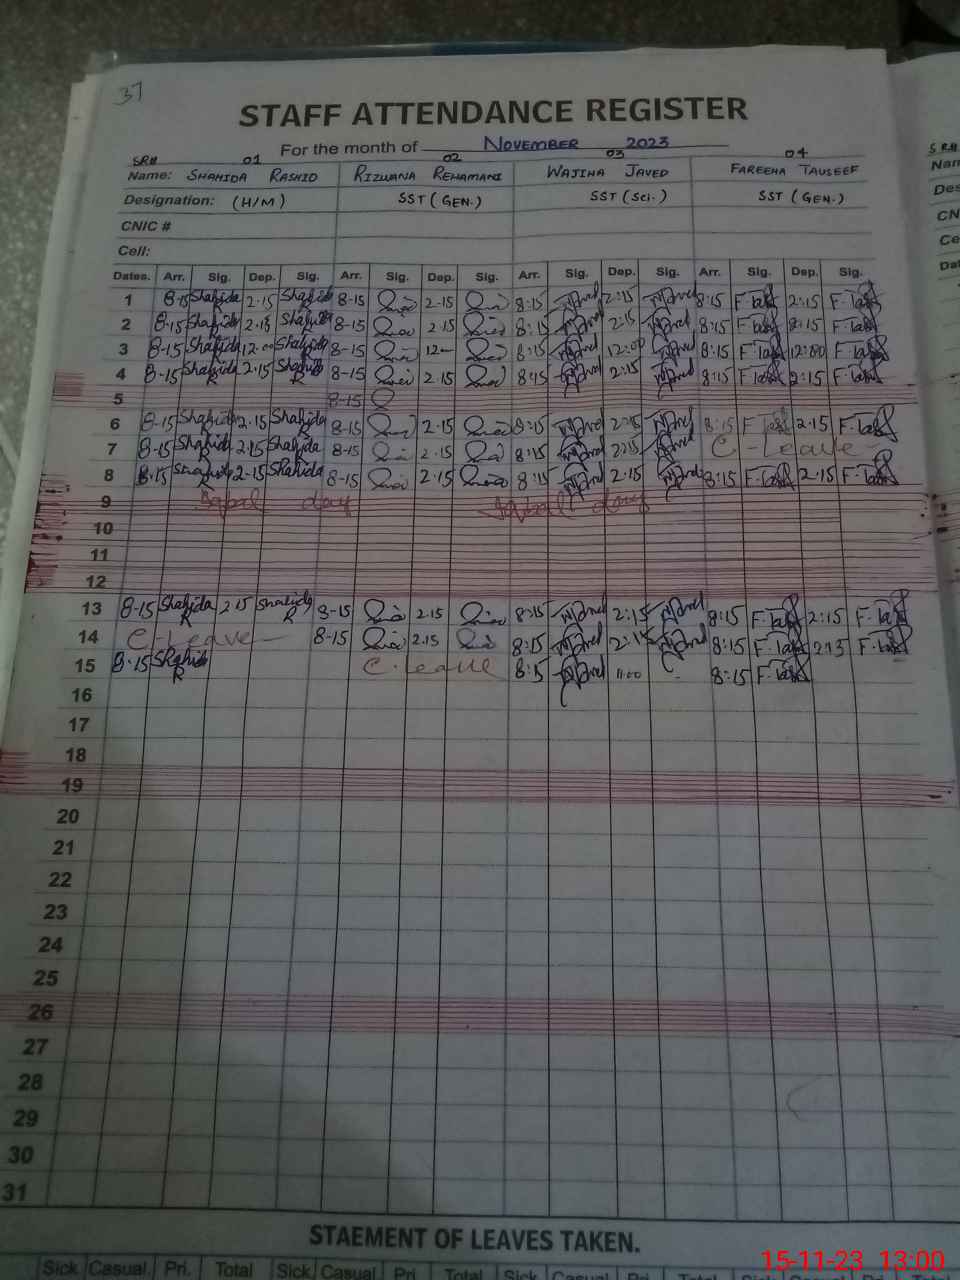 37
STAFF ATTENDANCE REGISTER
For the month of NOVEMBER 2023
SR# 01 02 03 04
Name: SHAHIDA RASHID RIZWANA REHAMANI WAJIHA JAVED FAREEHA TAUSEEF
Designation: (H/M) SST (GEN.) SST (Sci.) SST (GEN.)
CNIC #
Cell:
Dates. Arr. Sig. Dep. Sig. Arr. Sig. Dep. Sig. Arr. Sig. Dep. Sig. Arr. Sig. Dep. Sig.
1 8-15 Shahida R 2.15 Shahida 8-15 2-15 8:15 2:15 8:15 2:15
2 8-15 Shahida R 2.15 Shahida 8-15 2.15 8:15 2.15 8:15 2:15
3 8-15 Shahida R 12.00 Shahida 8-15 12- 8:15 12:00 8:15 12:00
4 8-15 Shahida R 2.15 Shahida R 8-15 2.15 8:15 2:15 8:15 2:15
5 8-15
6 8-15 Shahida 2.15 Shahida 8-15 2.15 8:15 2:15 8:15 2.15
7 8-15 Shahida R 2.15 Shahida 8-15 2.15 8:15 2:15 C-Leave
8 8.15 Shahida 2-15 Shahida 8-15 2.15 8:15 2.15 8:15 2.15
9 Iqbal day Iqbal day
10
11
12
13 8-15 Shahida R 2 15 Shahida R 8-15 2.15 8:15 2:15 8:15 2:15
14 C-Leave- 8-15 2.15 8:15 2:15 8:15 2:15
15 8-15 Shahida R C.leave 8:15 11:00 8:15
16
17
18
19
20
21
22
23
24
25
26
27
28
29
30
31
STAEMENT OF LEAVES TAKEN.
Sick Casual. Pri. Total Sick Casual Pri Total Sick
15-11-23 13:00
S R.#
Nam
Des
CN
Ce
Dat